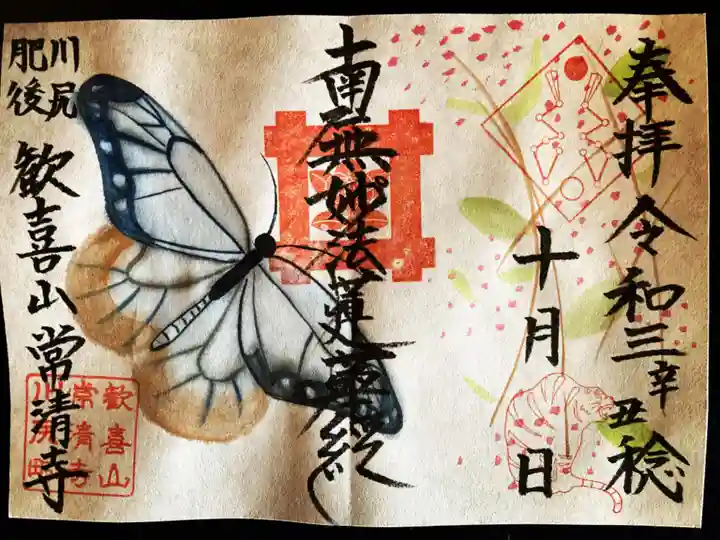 奉拝
令和三辛丑稔
十月 日
南無妙法蓮華経
川尻
肥後
歓喜山常清寺
歓喜山
常清寺